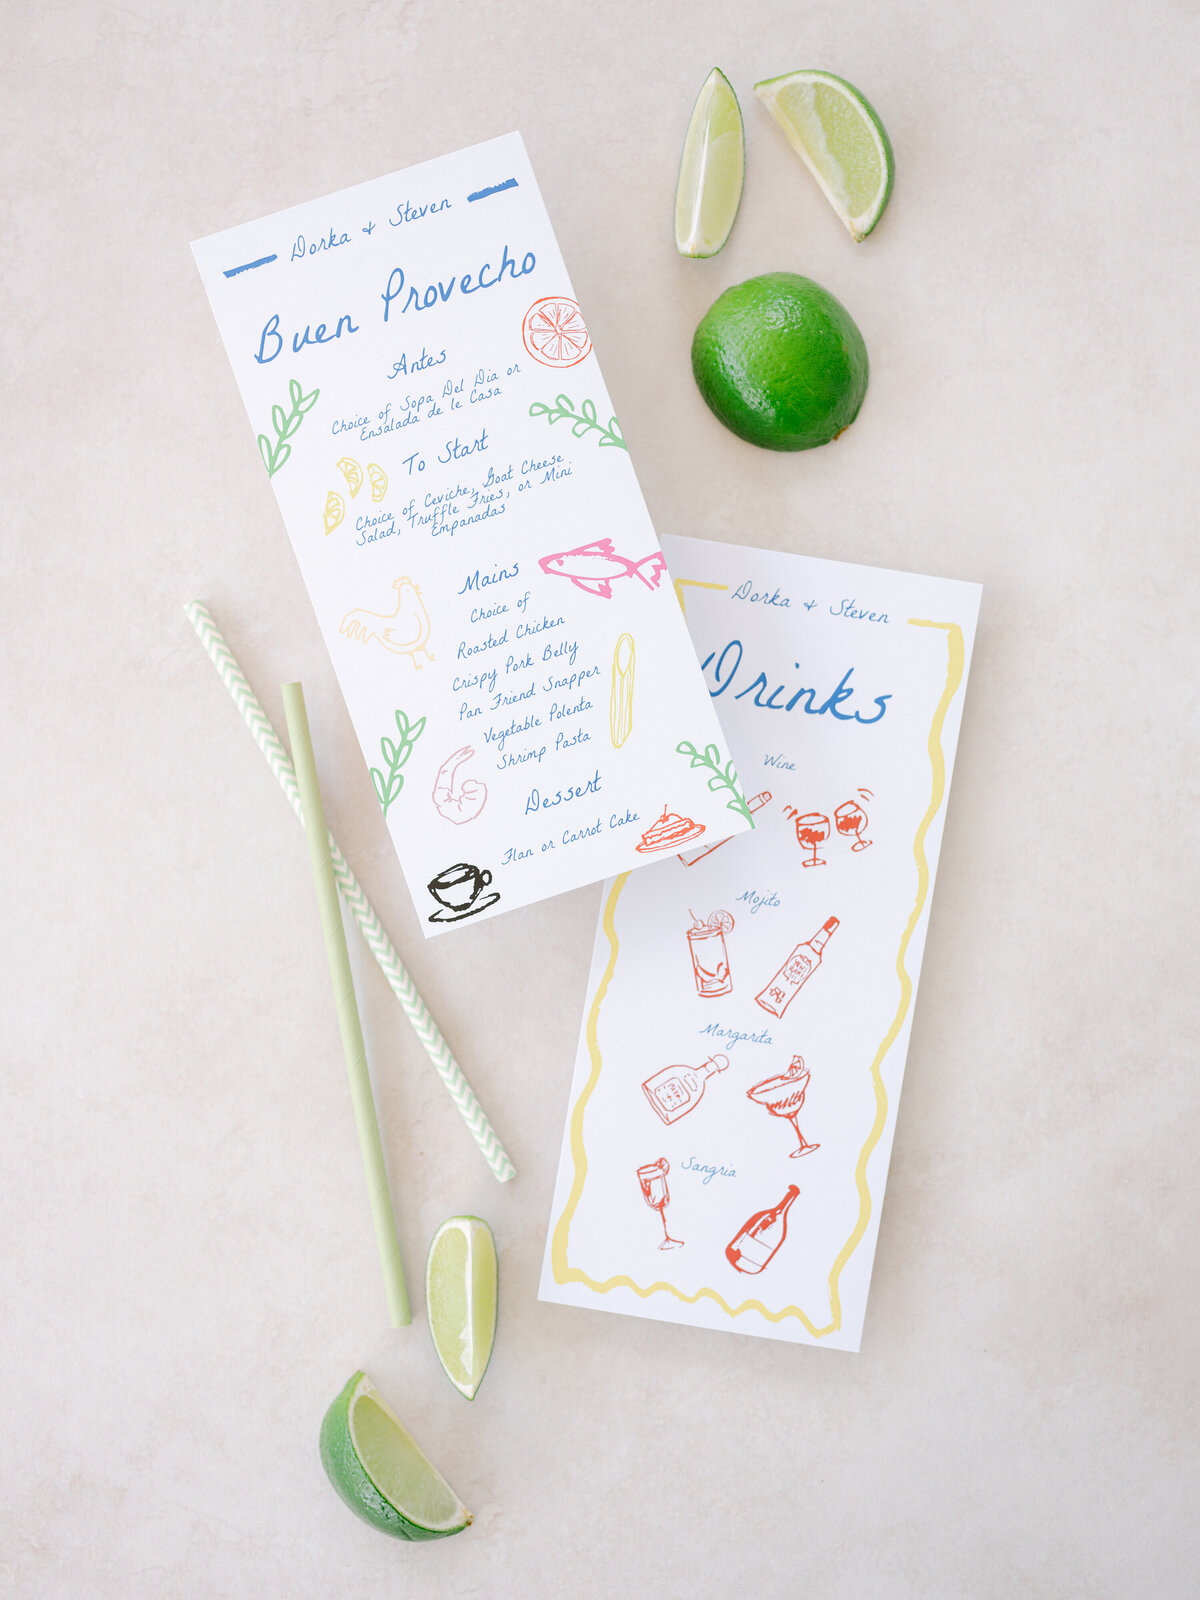 Dorka & Steven
Buen Provecho
Antes
Choice of Sopa Del Dia or
Ensalada de le Casa
To Start
Choice of Ceviche, Goat Cheese
Salad, Truffle Fries, or Mini
Empanadas
Mains
Choice of
Roasted Chicken
Crispy Pork Belly
Pan Friend Snapper
Vegetable Polenta
Shrimp Pasta
Dessert
Flan or Carrot Cake
Dorka & Steven
Drinks
Wine
Mojito
Margarita
Sangria